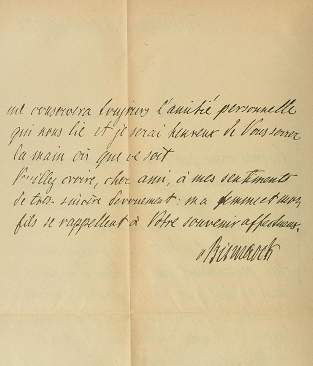 me conservera toujours l'amitié personnelle
qui nous lie et je serai heureux de Vous serrer
la main où que ce soit
Veuillez croire, cher ami, à mes sentiments
de très sincère dévouement: ma femme et mon
fils se rappellent à Votre souvenir affectueux.
v Bismarck